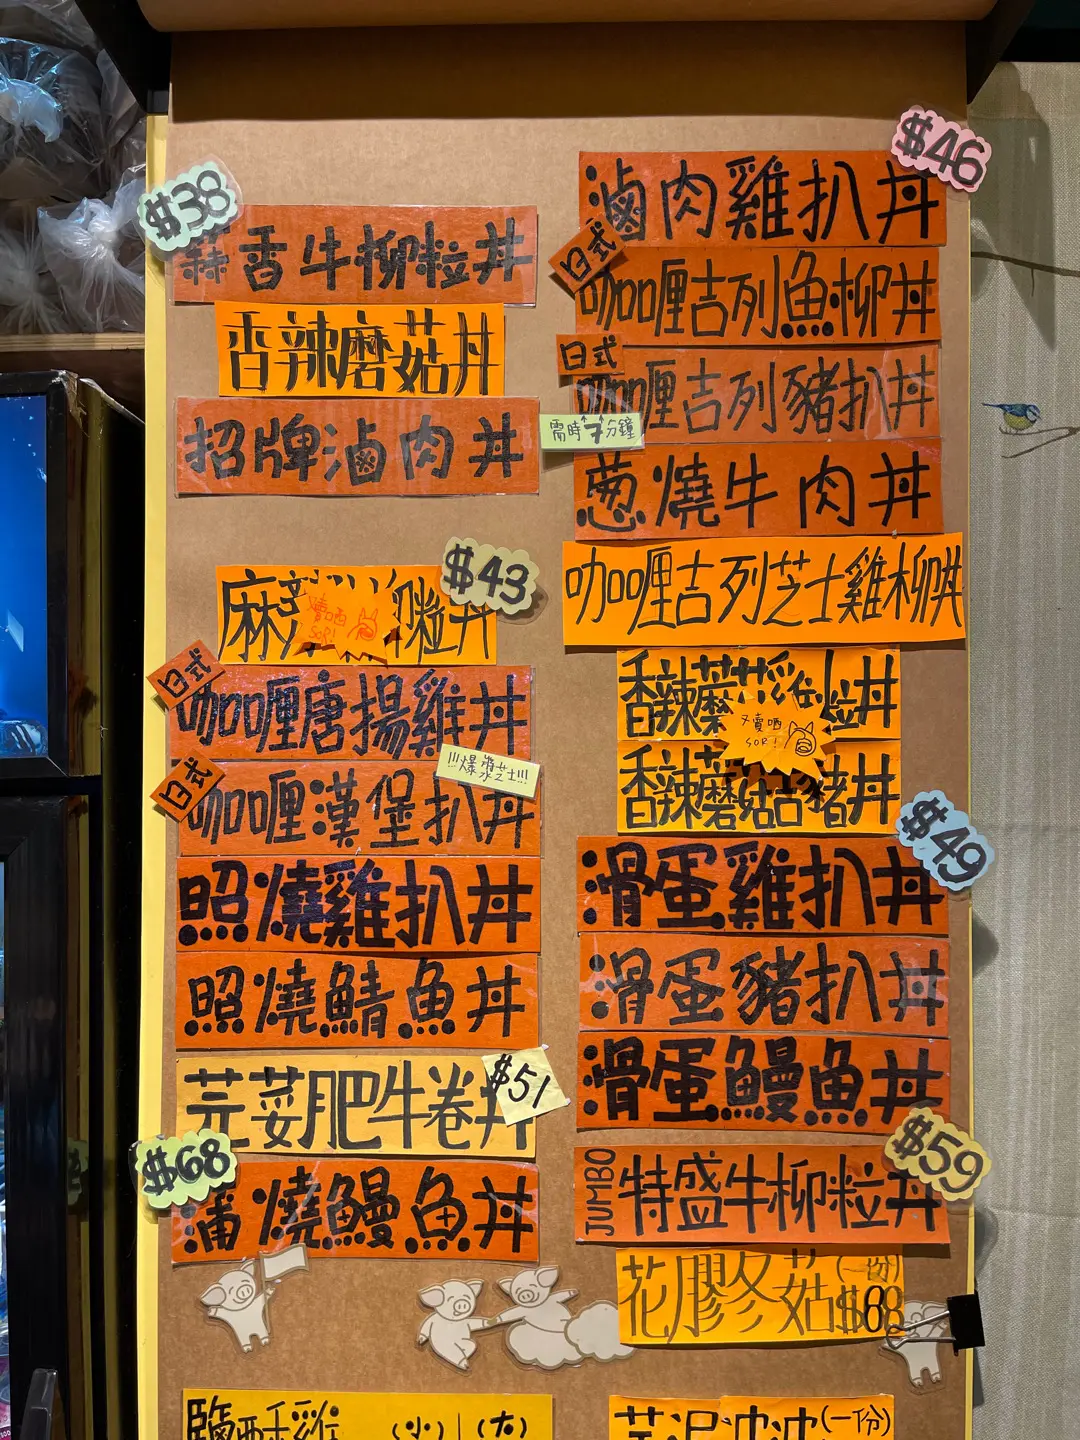 $38
蒜香牛柳粒丼
香辣磨菇丼
招牌滷肉丼
$43
賣哂
SOR!
日式
咖喱唐揚雞丼
!!!爆漿芝士!!!
日式
咖喱漢堡扒丼
照燒雞扒丼
照燒鯖魚丼
$51
芫荽肥牛卷丼
$68
蒲燒鰻魚丼
(小) | (大)
$46
滷肉雞扒丼
日式
咖喱吉列魚柳丼
日式
咖喱吉列豬扒丼
需時7分鐘
葱燒牛肉丼
咖喱吉列芝士雞柳丼
香辣磨菇雞粒丼
又賣哂
SOR!
香辣磨菇豬丼
$49
滑蛋雞扒丼
滑蛋豬扒丼
滑蛋鰻魚丼
$59
JUMBO 特盛牛柳粒丼
花膠冬菇(一份)
(一份)